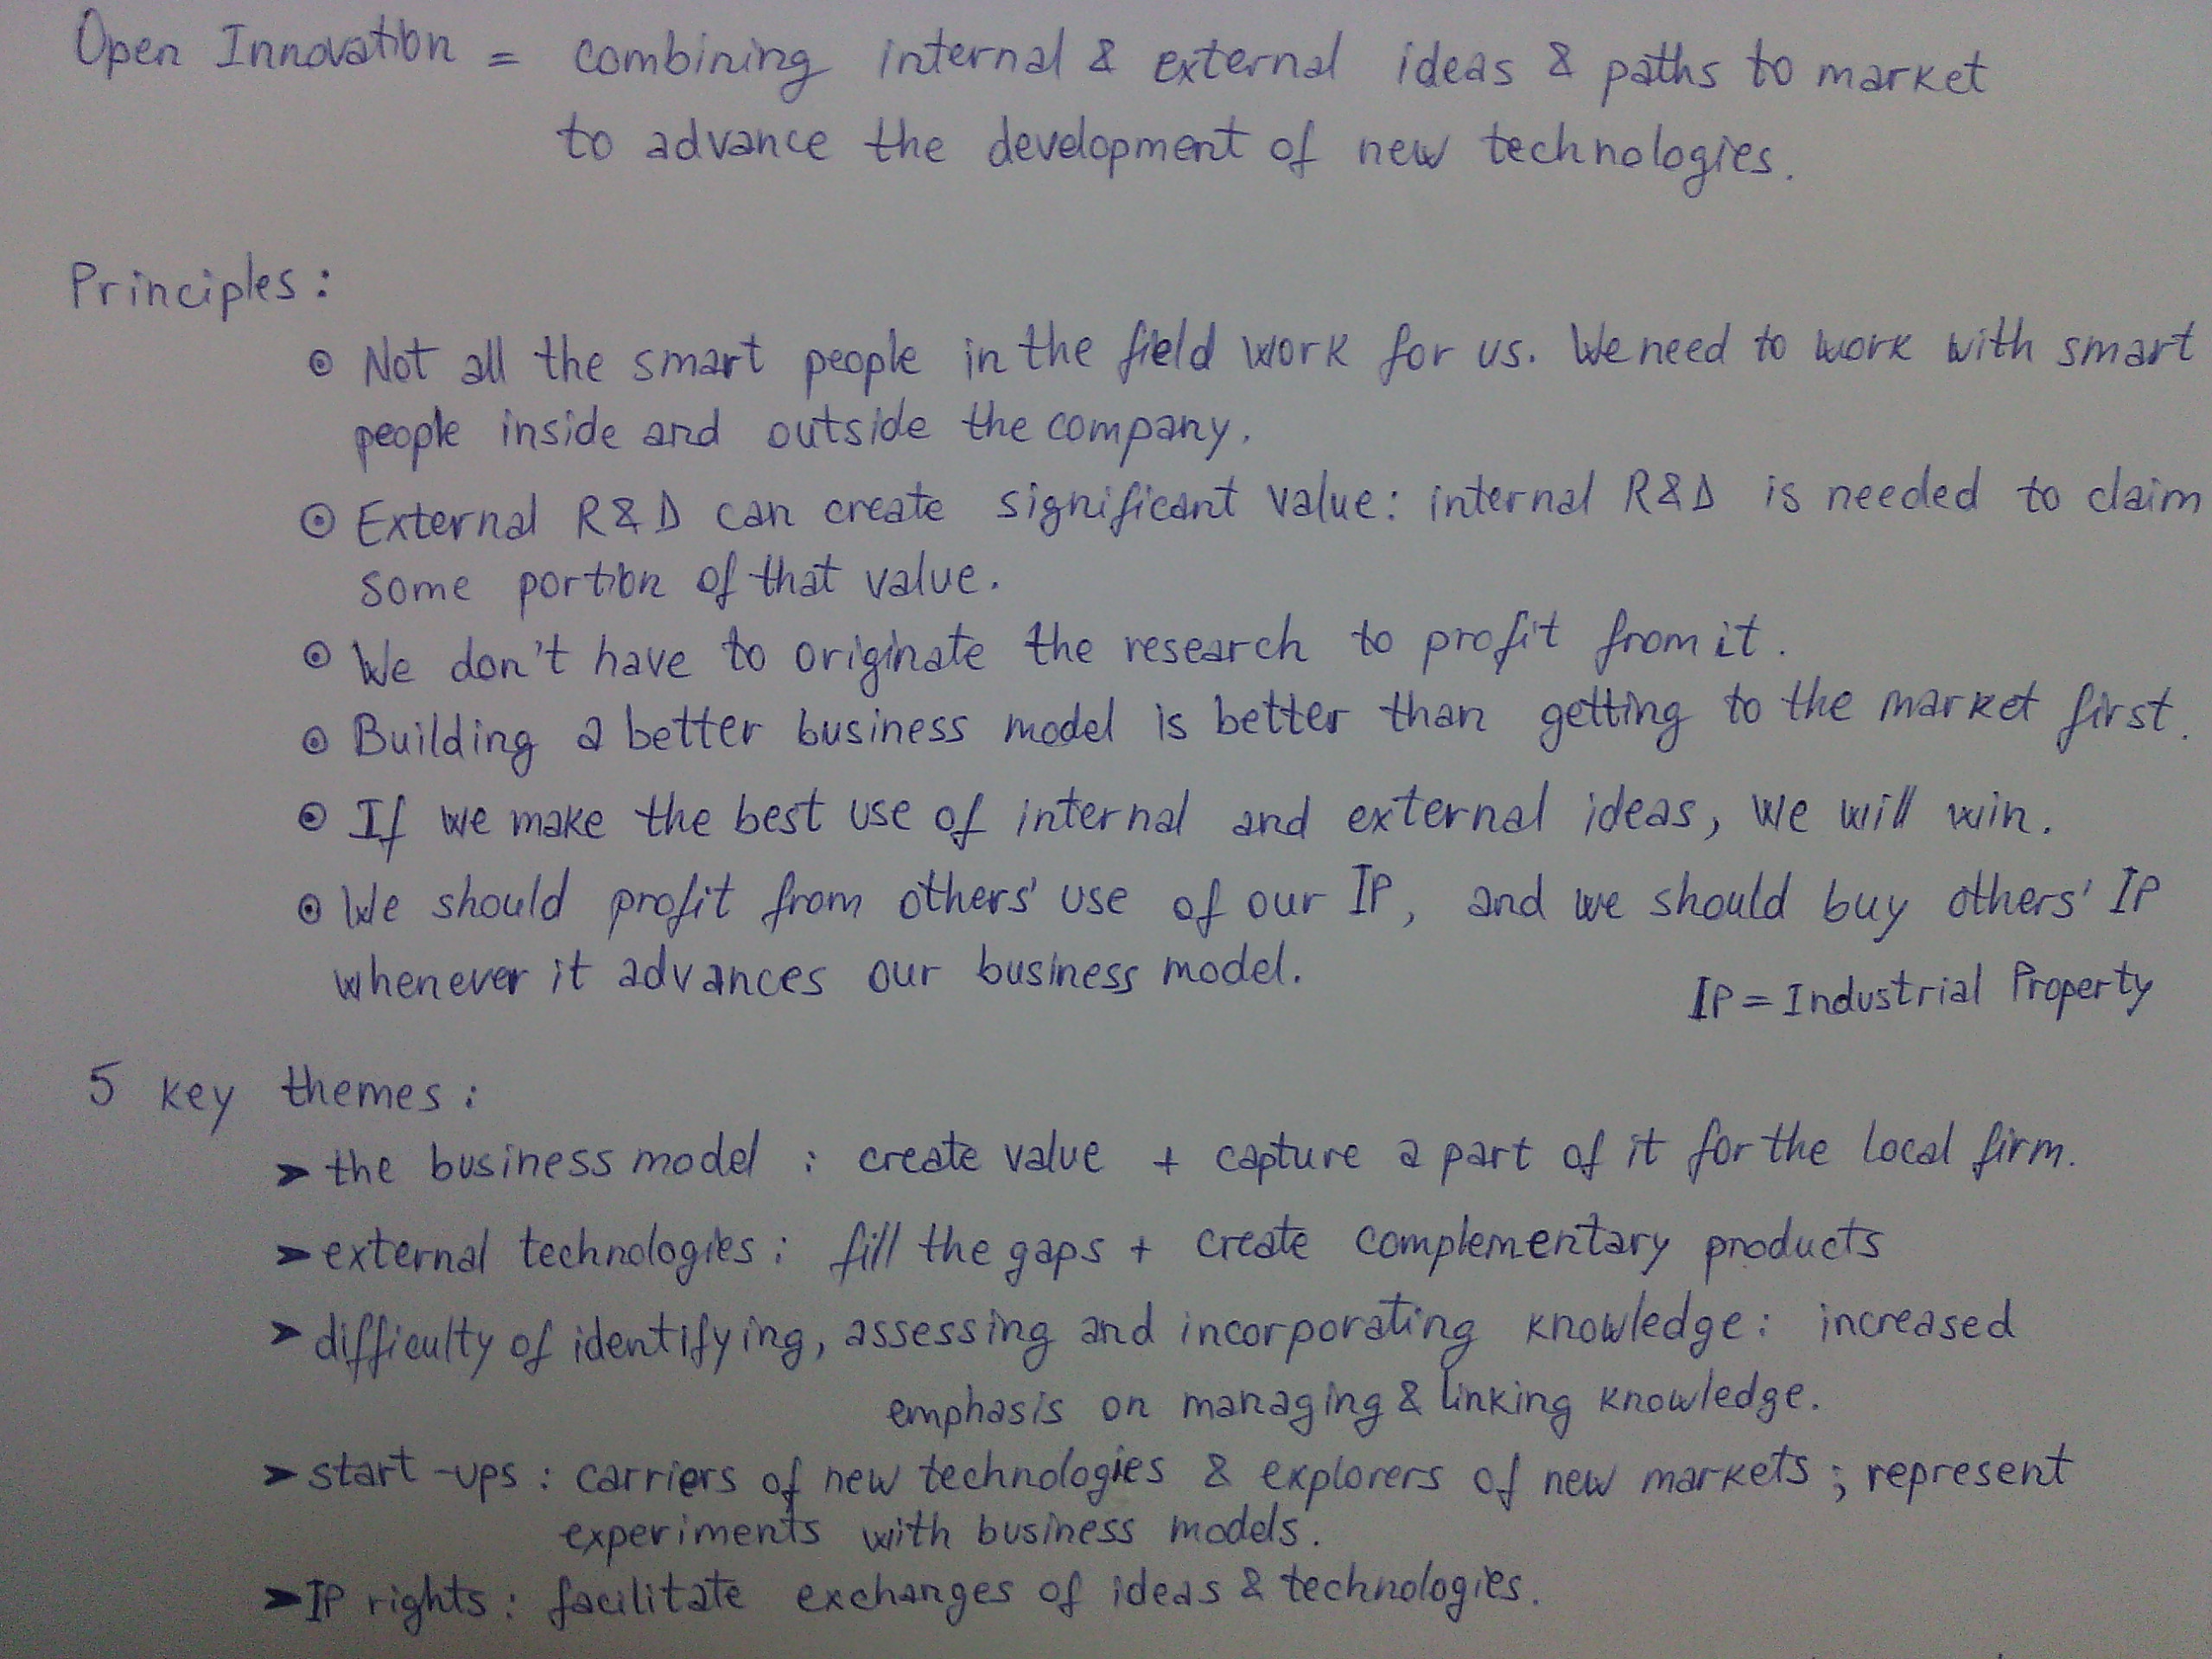 Open Innovation = combining internal & external ideas & paths to market
to advance the development of new technologies.
Principles:
⊙ Not all the smart people in the field work for us. We need to work with smart
people inside and outside the company.
⊙ External R&D can create significant value: internal R&D is needed to claim
some portion of that value.
⊙ We don't have to originate the research to profit from it.
⊙ Building a better business model is better than getting to the market first.
⊙ If we make the best use of internal and external ideas, we will win.
⊙ We should profit from others' use of our IP, and we should buy others' IP
whenever it advances our business model.
IP = Industrial Property
5 key themes:
➤ the business model : create value + capture a part of it for the local firm.
➤ external technologies : fill the gaps + create complementary products
➤ difficulty of identifying, assessing and incorporating knowledge : increased
emphasis on managing & linking knowledge.
➤ start-ups : carriers of new technologies & explorers of new markets ; represent
experiments with business models.
➤ IP rights : facilitate exchanges of ideas & technologies.